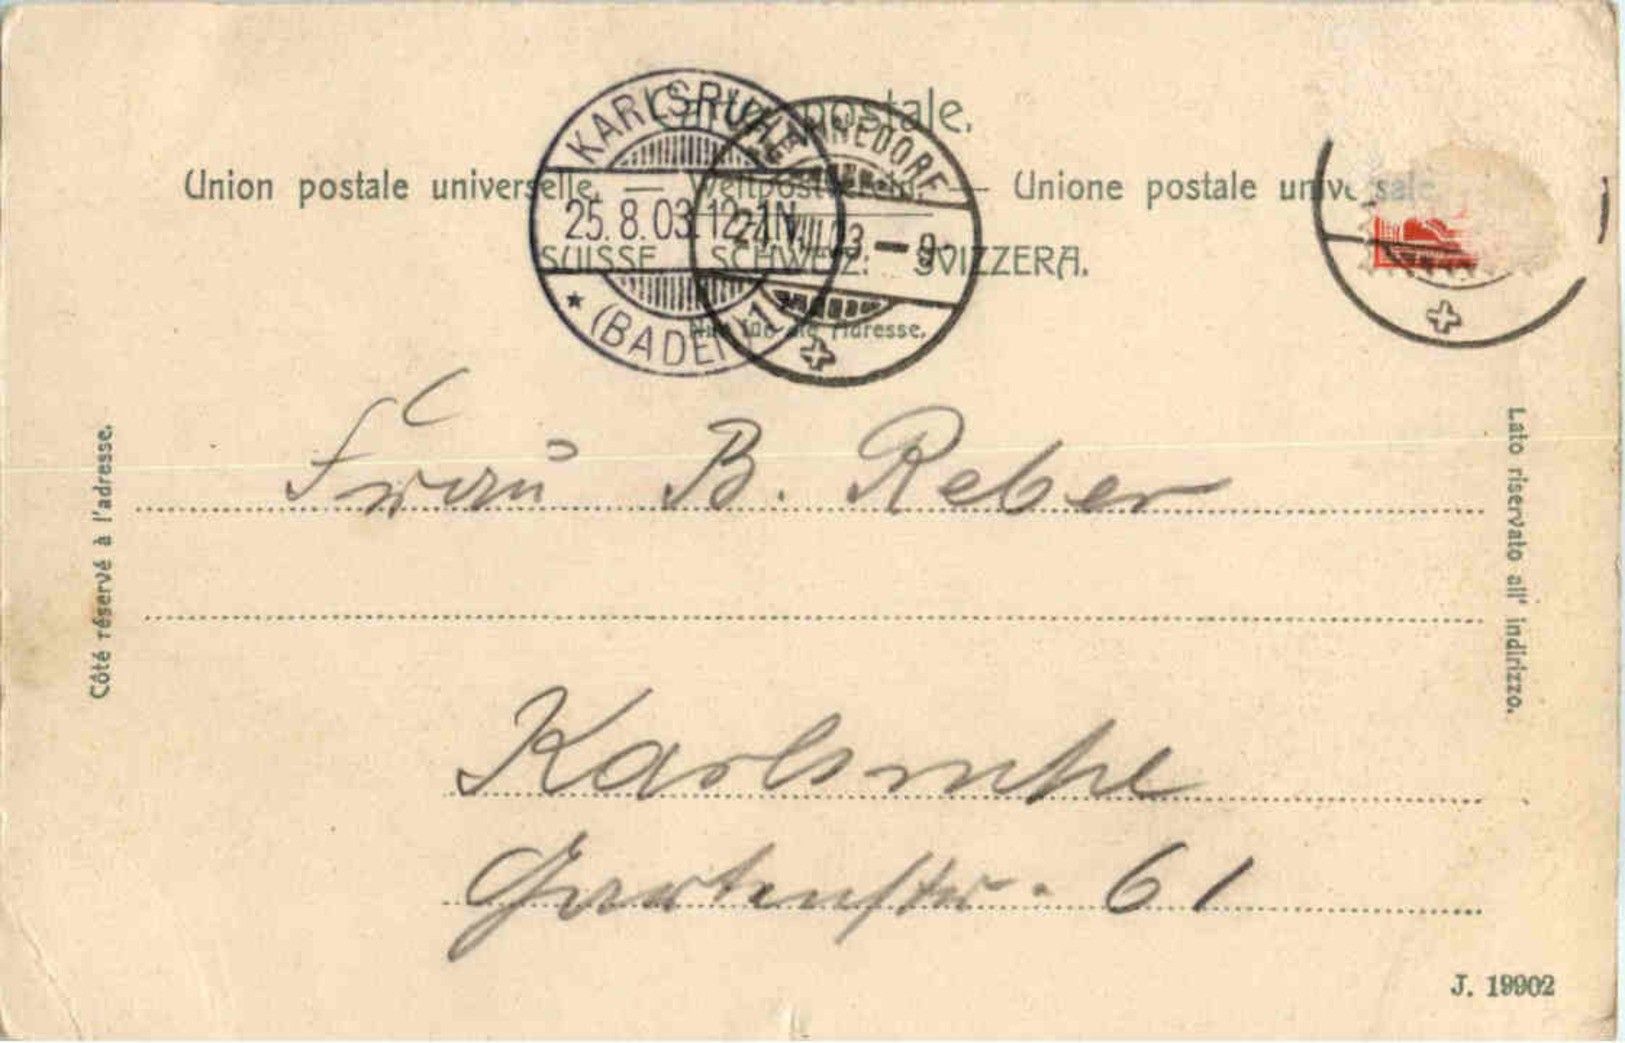 Carte postale.
Union postale universelle. — Weltpostverein. — Unione postale universale
SUISSE SCHWEIZ: SVIZZERA.
Nur für die Adresse.
KARLSRUHE
25.8.03. 12-1N.
★ (BADEN) 1
24. VIII. 03 — 9
Côté réservé à l'adresse.
Lato riservato all' indirizzo.
Frau B. Reber
Karlsruhe
Gartenstr. 61
J. 19902